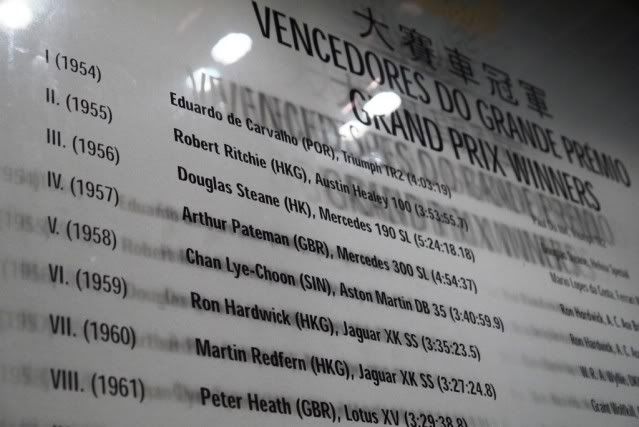 大賽車冠軍
VENCEDORES DO GRANDE PRÉMIO
GRAND PRIX WINNERS
I (1954) Eduardo de Carvalho (POR), Triumph TR2 (4:03:19)
II. (1955) Robert Ritchie (HKG), Austin Healey 100 (3:53:55.7)
III. (1956) Douglas Steane (HK), Mercedes 190 SL (5:24:18.18)
IV. (1957) Arthur Pateman (GBR), Mercedes 300 SL (4:54:37)
V. (1958) Chan Lye-Choon (SIN), Aston Martin DB 35 (3:40:59.9)
VI. (1959) Ron Hardwick (HKG), Jaguar XK SS (3:35:23.5)
VII. (1960) Martin Redfern (HKG), Jaguar XK SS (3:27:24.8)
VIII. (1961) Peter Heath (GBR), Lotus XV (3:29:38.8)
Mario Lopes da Costa, Ferrari
Ron Hardwick, A. C. Ace
Ron Hardwick, A. C.
W. R. A Wyllie,
Grant Wolfkill,